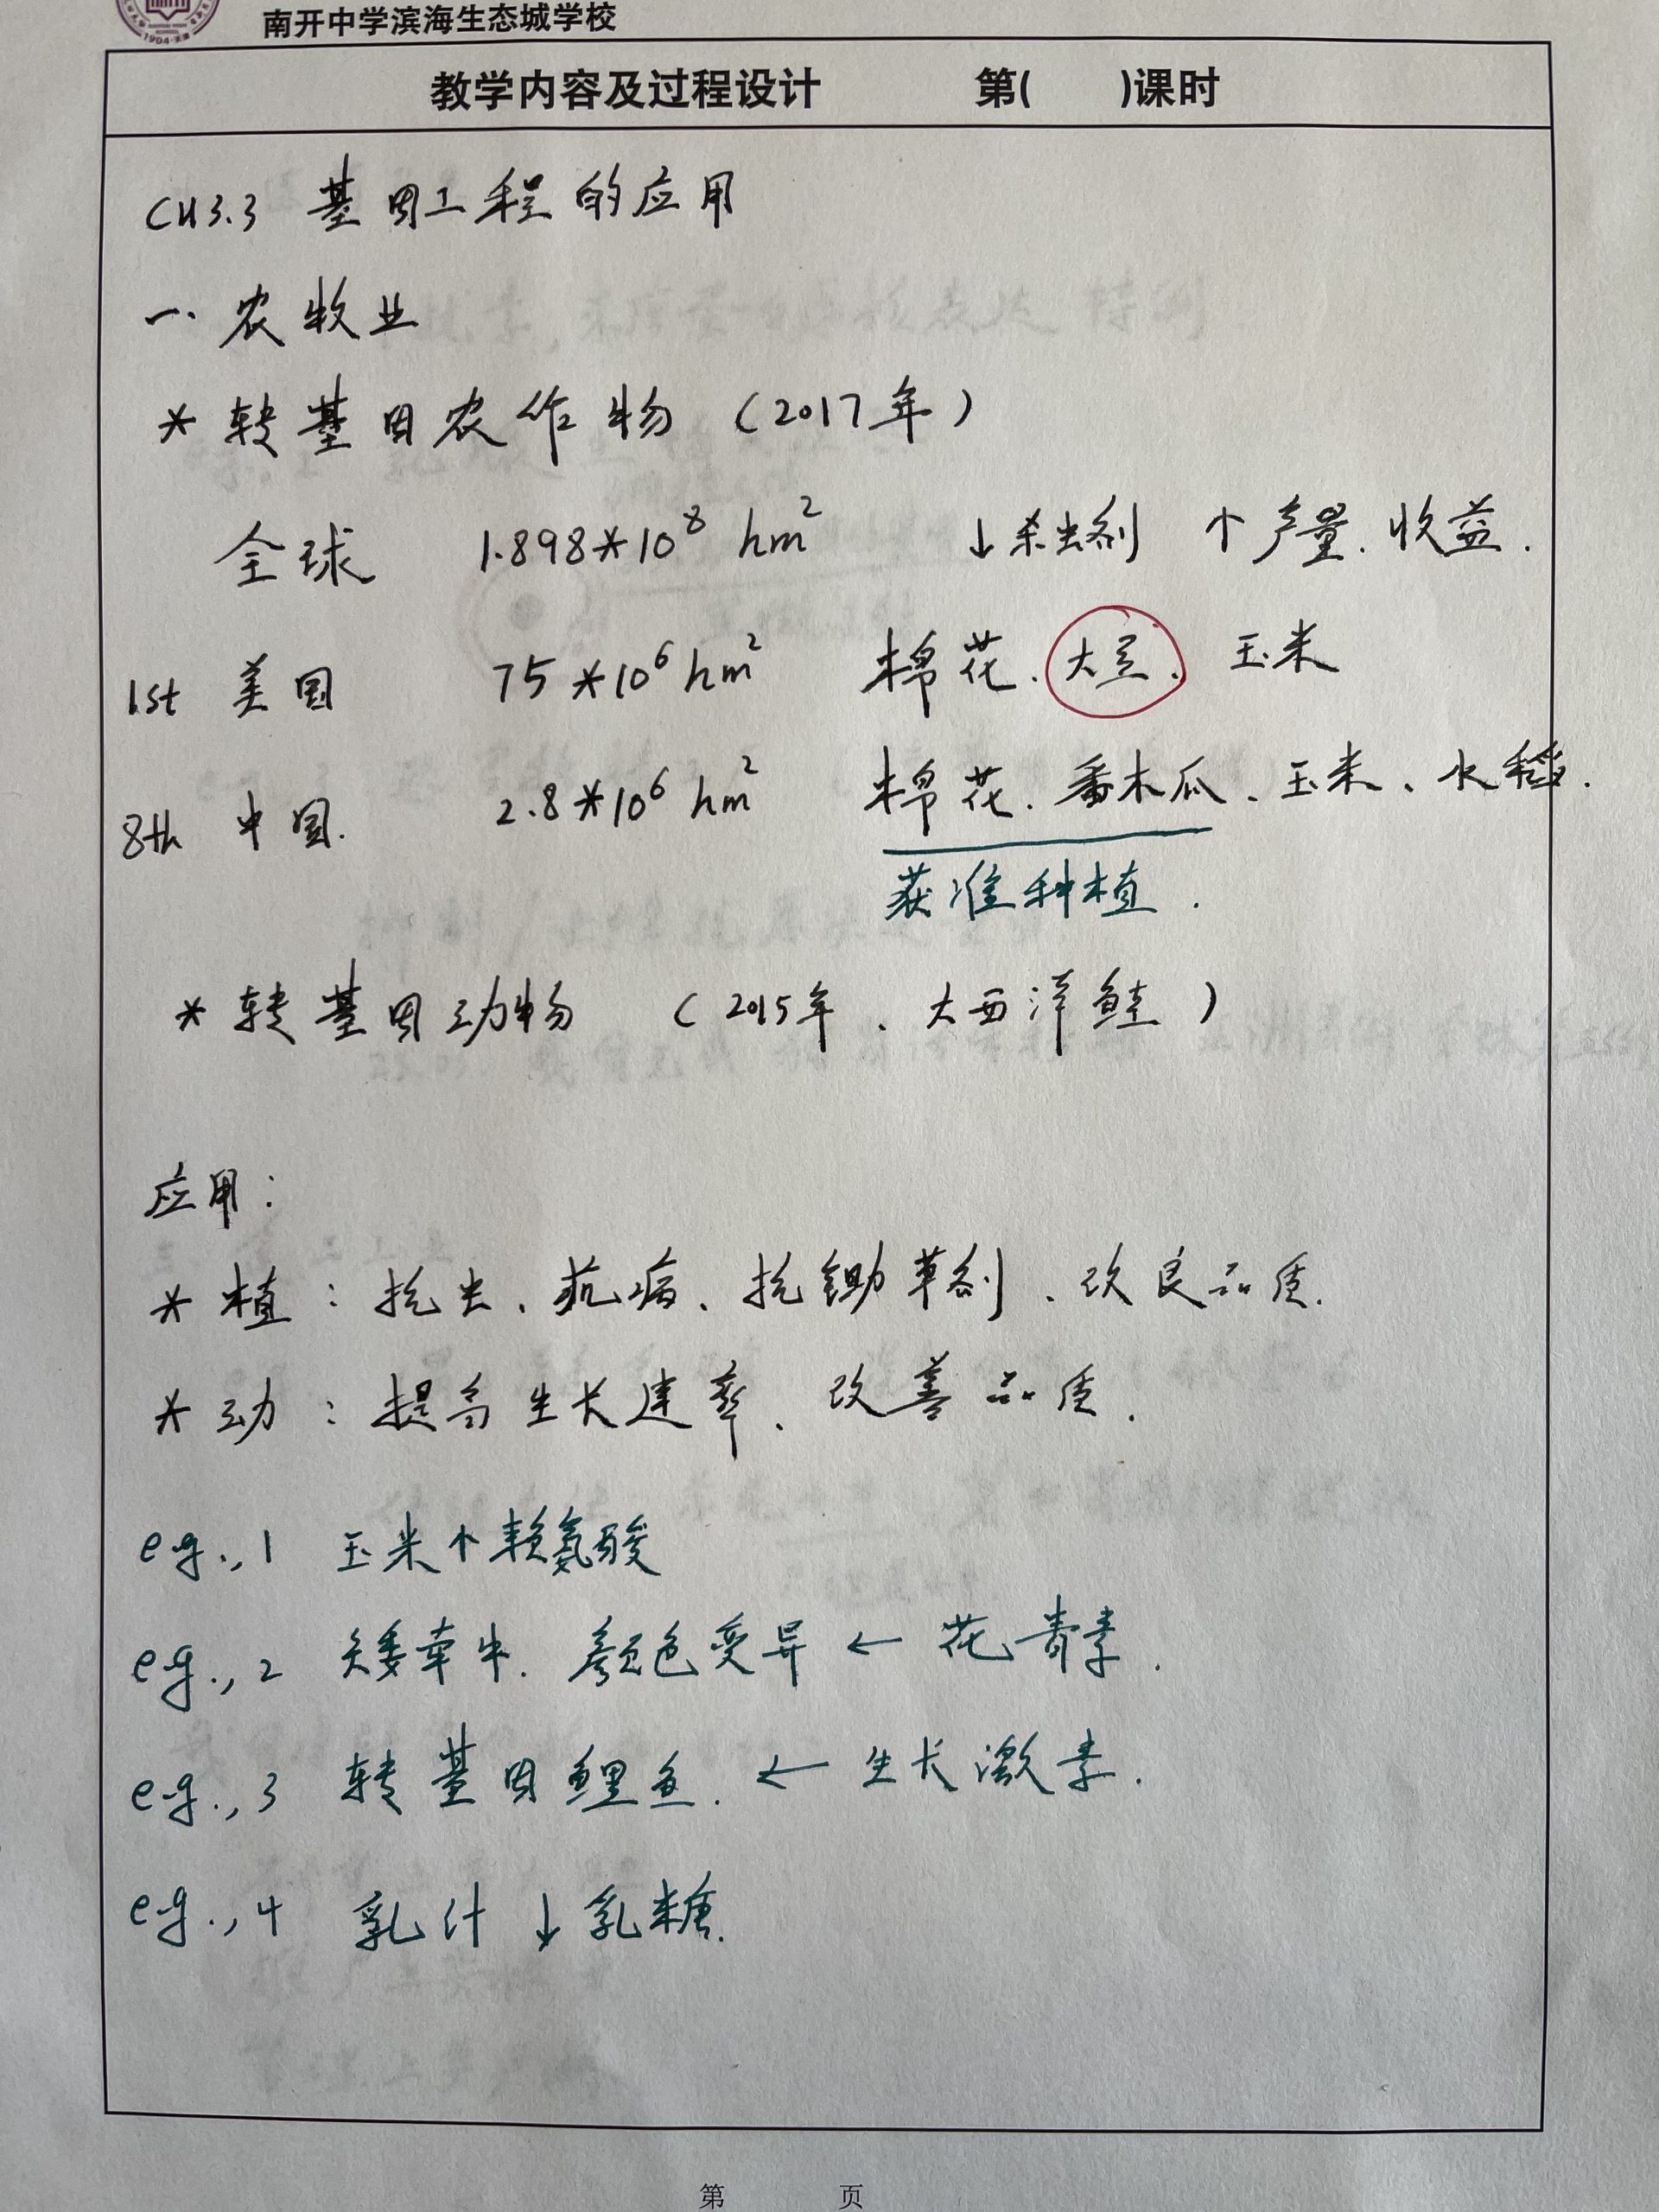 南开中学滨海生态城学校
教学内容及过程设计 第( )课时
CH3.3 基因工程的应用
一. 农牧业
* 转基因农作物 (2017年)
全球 1.898*10⁸ hm² ↓杀虫剂 ↑产量、收益.
1st 美国 75*10⁶ hm² 棉花、大豆、玉米
8th 中国. 2.8*10⁶ hm² 棉花、番木瓜、玉米、水稻.
获准种植.
* 转基因动物 (2015年、大西洋鲑)
应用:
* 植: 抗虫、抗病、抗锄草剂、改良品质.
* 动: 提高生长速率、改善品质.
e.g.,1 玉米↑赖氨酸
e.g.,2 矮牵牛. 颜色变异 ← 花青素.
e.g.,3 转基因鲤鱼. ← 生长激素.
e.g.,4 乳汁 ↓ 乳糖.
第 页